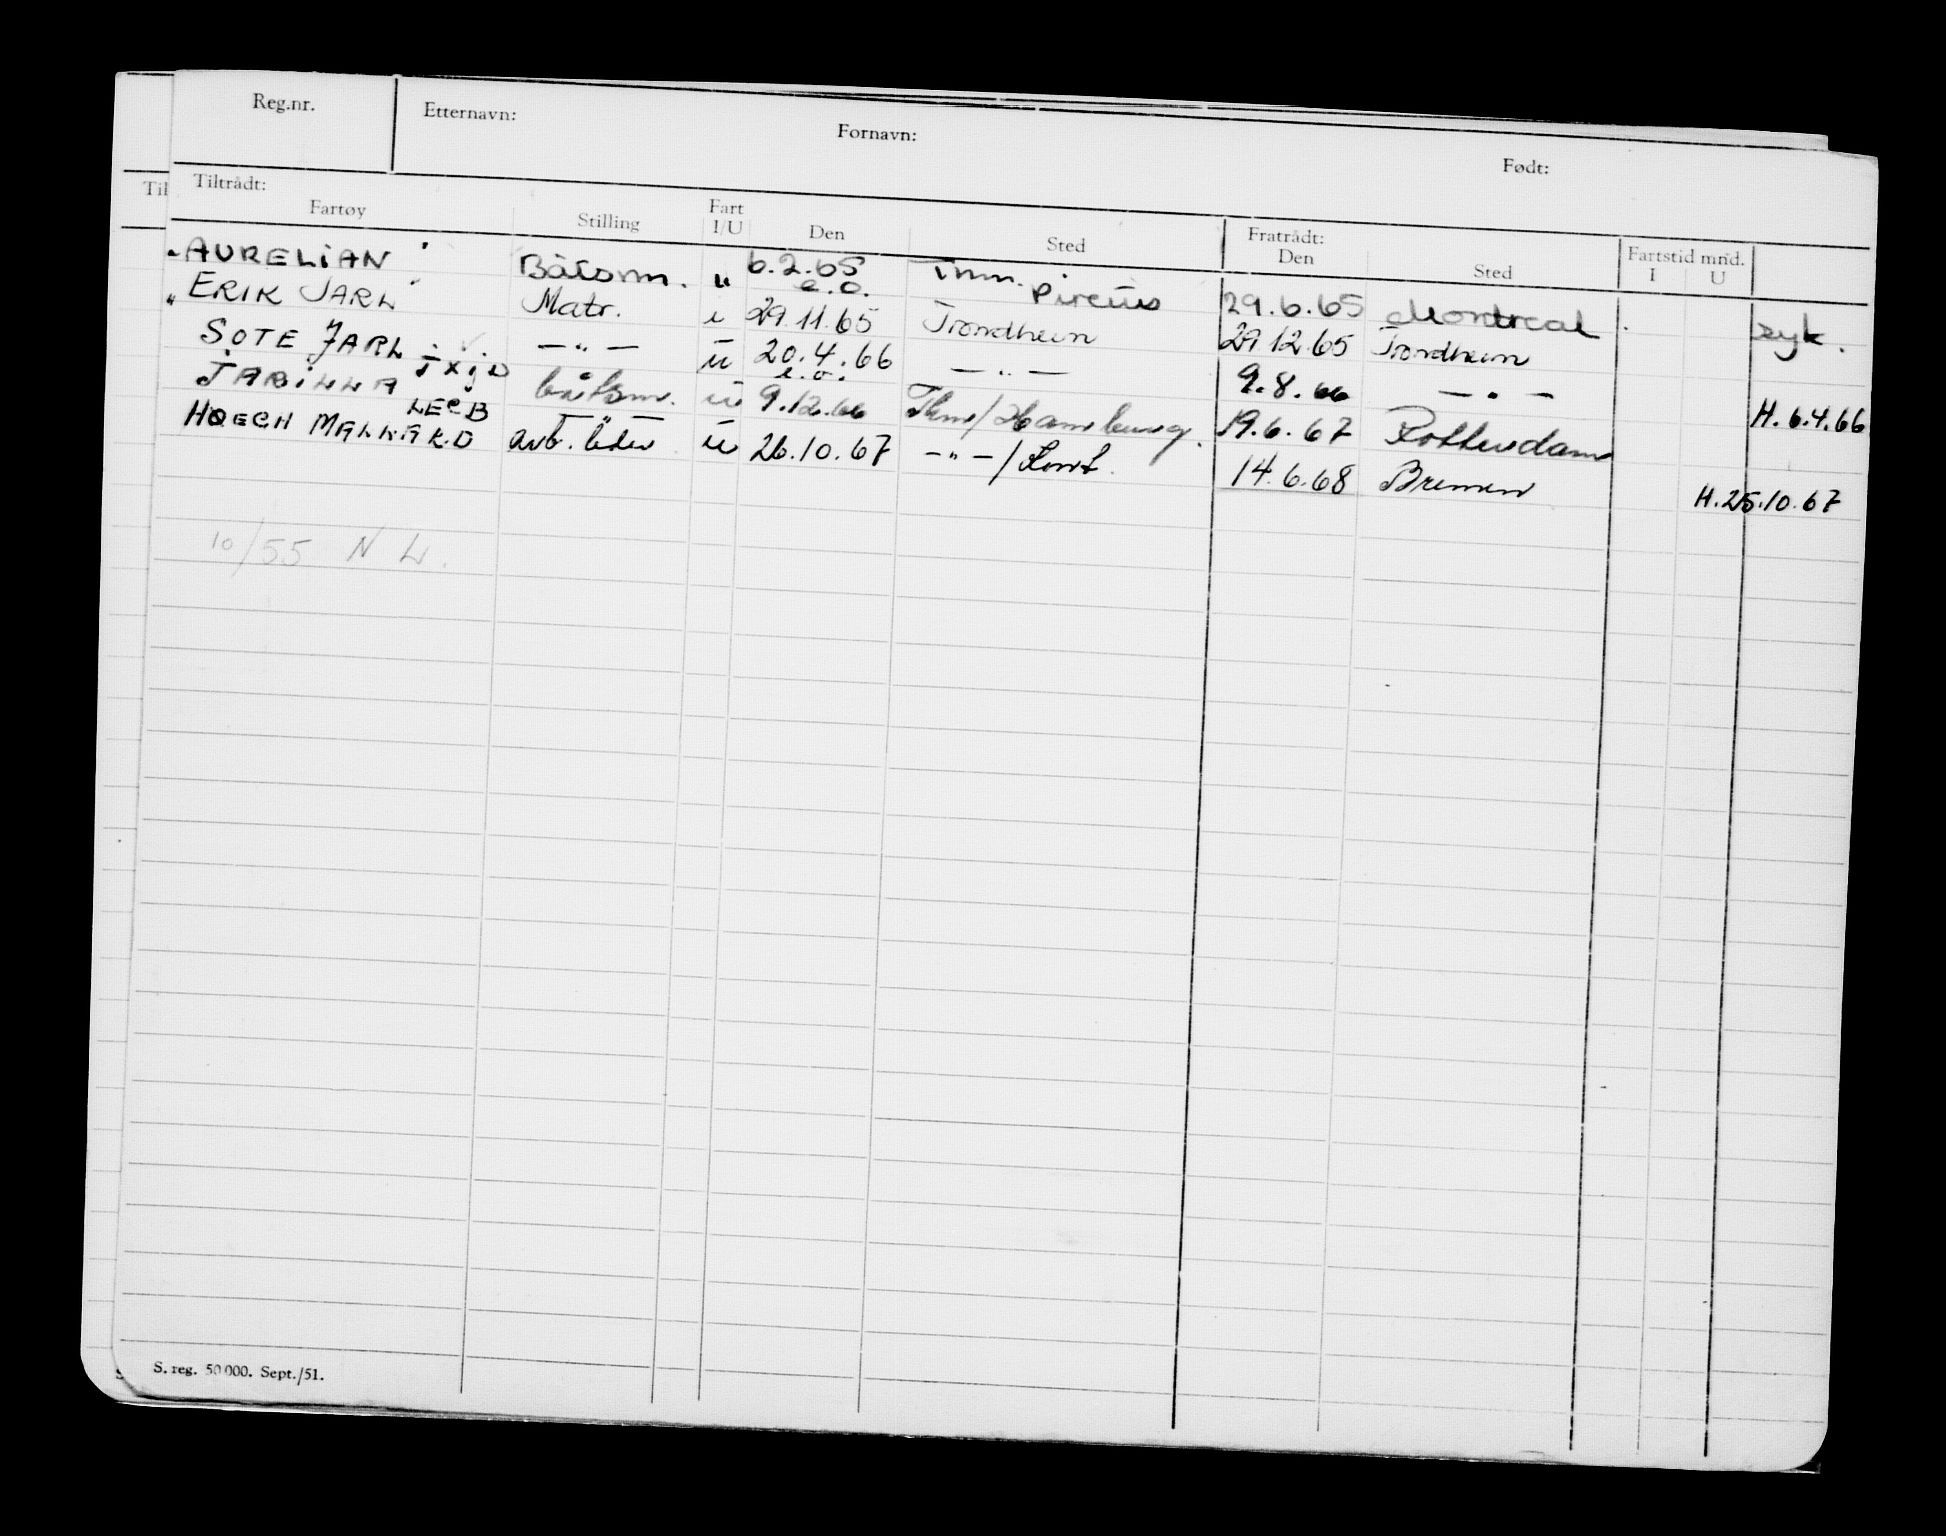 Reg.nr. Etternavn: Fornavn: Født:
Tiltrådt: Fratrådt: Fartstid mnd.
Fartøy Stilling Fart I/U Den Sted Den Sted I U
"AURELIAN" Båtsm. u 6.2.65 e.o. Thm. Pireus 29.6.65 Montreal syk.
"ERIK JARL" Matr. i 29.11.65 Trondheim 29.12.65 Trondheim
SOTE JARL JXJD — " — u 20.4.66 e.o. — " — 9.8.66 — " — H. 6.4.66
JABILLA LECB båtsm. u 9.12.66 Thm/Hamburg. 19.6.67 Rotterdam
HOEGH MALLARD — " — arb. leder u 26.10.67 — " — / 14.6.68 Bremen H. 25.10.67
10/55 N L.
S. reg. 50 000. Sept./51.